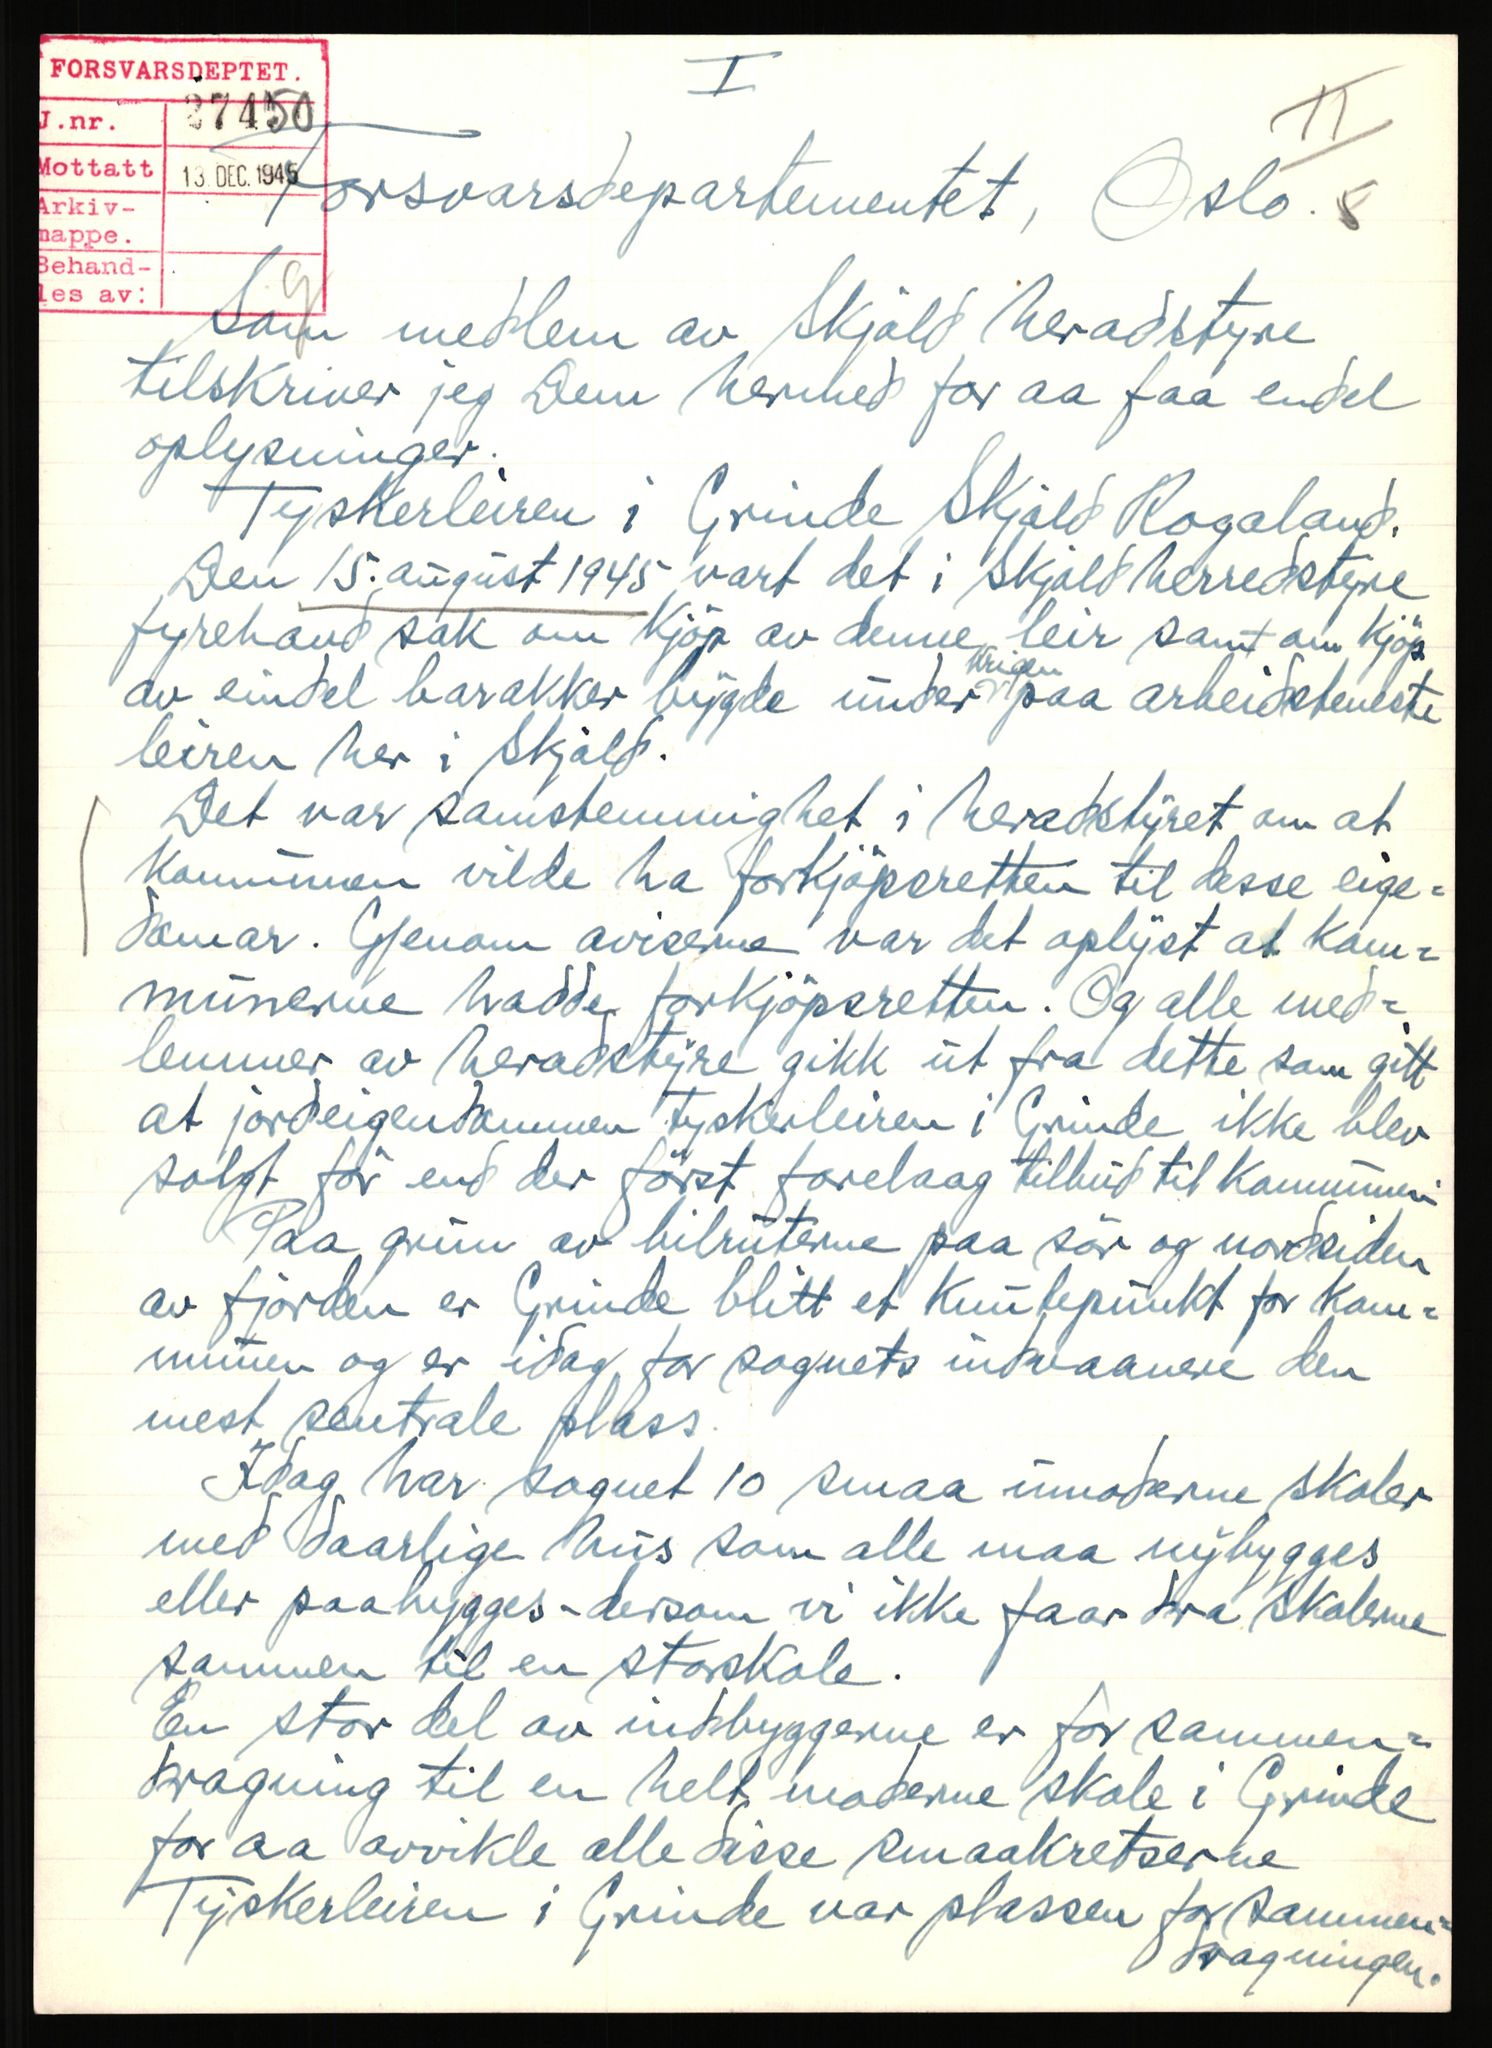 FORSVARSDEPTET.
J.nr. 27450
Mottatt 13. DEC. 1945
Arkiv-
mappe.
Behand-
les av:
I
Forsvarsdepartementet, Oslo.
Som medlem av Skjold heradstyre
tilskriver jeg Dem hermed for aa faa endel
oplysninger.
Tyskerleiren i Grinde Skjold Rogaland.
Den 15. august 1945 vart det i Skjold herredstyre
fyrehand sak om kjöp av denne leir samt om kjöp
av eindel barakker bygde under krigen paa arbeidsteneste
leiren her i Skjold.
Det var samstemmighet i heradstyret om at
kommunen vilde ha forkjöpsretten til desse eige=
domar. Gjenom aviserne var det oplyst at kom=
munerne hadde forkjöpsretten. Og alle med=
lemmer av heradstyre gikk ut fra dette som gitt
at jordeigendommen tyskerleiren i Grinde ikke blev
solgt för end der först forelaag tilbud til kommunen
Paa grun av bilruterne paa sör og nordsiden
av fjorden er Grinde blitt et knutepunkt for kom=
munen og er idag for sognets indvaanere den
mest sentrale plass.
Idag har sognet 10 smaa umoderne skoler
med daarlige hus som alle maa nybygges
eller paabygges - dersom vi ikke faar dra skolerne
sammen til en storskole.
En stor del av indbyggerne er for sammen=
dragning til en helt moderne skole i Grinde
for aa avvikle alle disse smaakretserne
Tyskerleiren i Grinde var plassen for sammen=
dragningen.